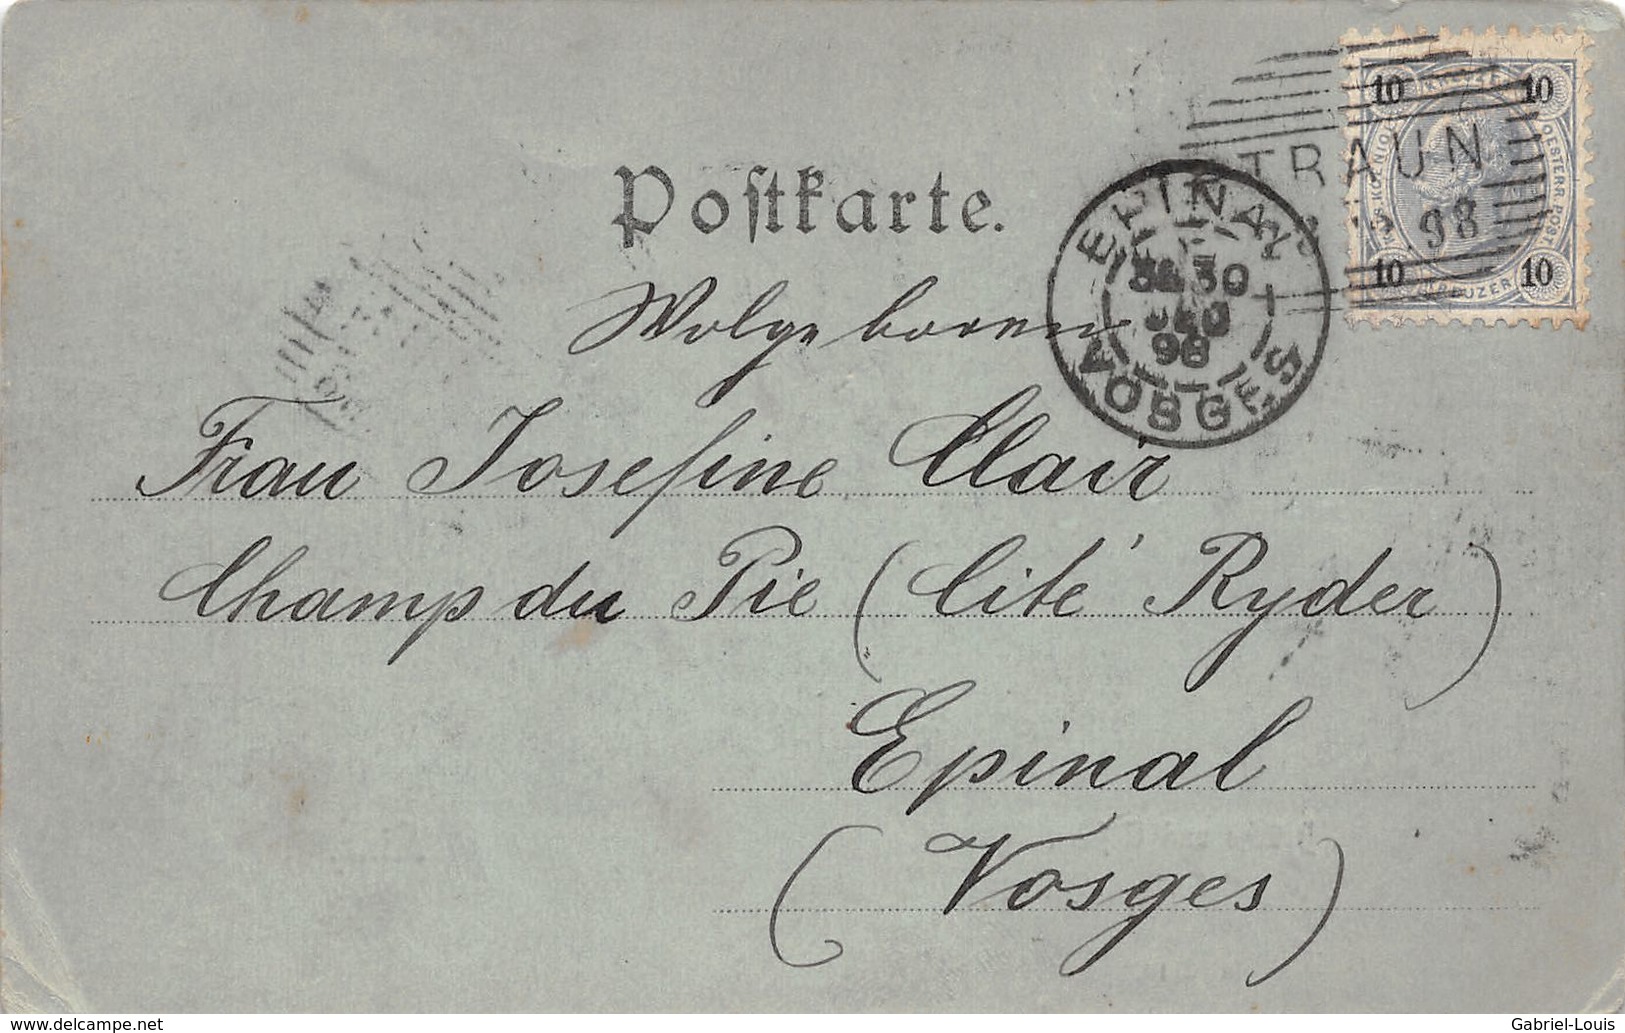 Postkarte.
10 KREUZER 10
OESTERR. POST
10 KREUZER 10
TRAUN
98
EPINAL
30
98
VOSGES
Wolgeboren
Frau Josefine Clair
Champ du Pie (Cité Ryder)
Epinal
(Vosges)
www.delcampe.net
Gabriel-Louis